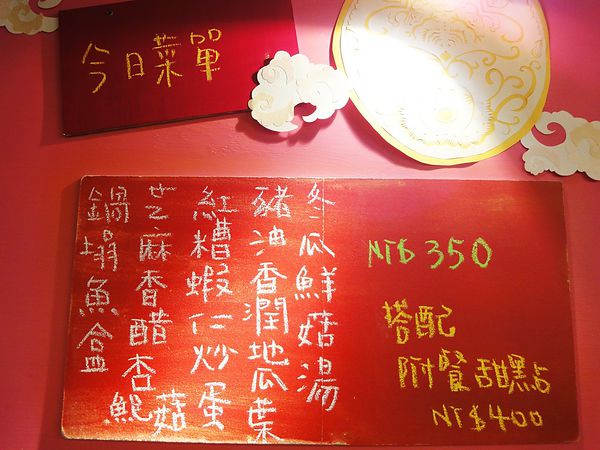 今日菜單
冬瓜鮮菇湯
豬油香潤地瓜葉
紅糟蝦仁炒蛋
芝麻香醋杏鮑菇
鍋塌魚盒
NT$350
搭配
附餐甜點
NT$400